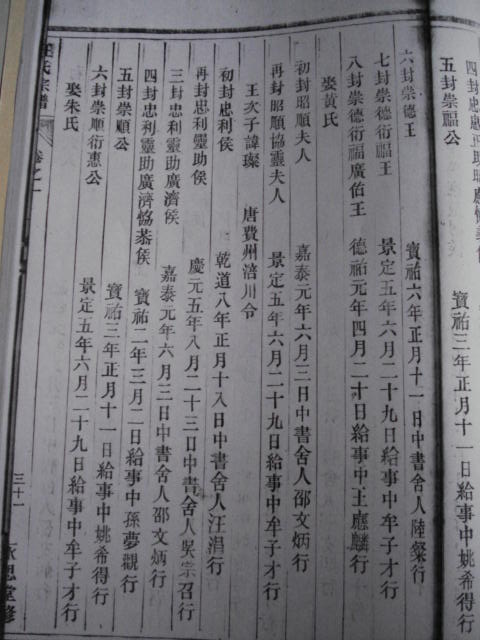 公
五封崇福公
寶祐三年正月十一日給事中姚希得行
六封崇德王
寶祐六年正月十一日中書舍人陸燦行
七封崇德衍福王
景定五年六月二十九日給事中牟子才行
八封崇德衍福廣佑王
德祐元年四月二十日給事中王應麟行
娶黃氏
初封昭順夫人
嘉泰元年六月三日中書舍人邵文炳行
再封昭順協靈夫人
景定五年六月二十九日給事中牟子才行
王次子諱璨
唐費州涪川令
初封忠利侯
乾道八年正月十八日中書舍人汪涓行
再封忠利靈助侯
慶元五年八月二十三日中書舍人吳宗召行
三封忠利靈助廣濟侯
嘉泰元年六月三日中書舍人邵文炳行
四封忠利靈助廣濟協恭侯
寶祐二年三月二日給事中孫夢觀行
五封崇順公
寶祐三年正月十一日給事中姚希得行
六封崇順衍惠公
景定五年六月二十九日給事中牟子才行
娶朱氏
氏宗譜
卷之一
三十一
承思堂修